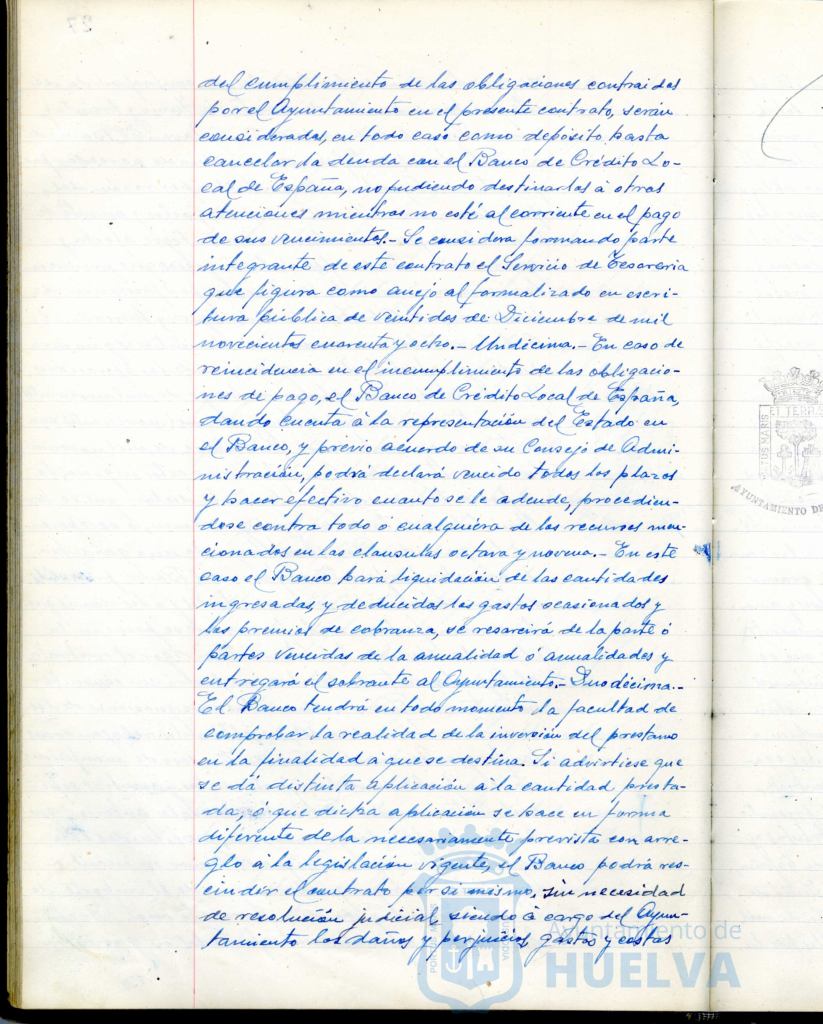 del cumplimiento de las obligaciones contraidas
por el Ayuntamiento en el presente contrato, serán
consideradas, en todo caso como depósito hasta
cancelar la deuda con el Banco de Crédito Lo-
cal de España, no pudiendo destinarlas á otras
atenciones mientras no esté al corriente en el pago
de sus vencimientos.- Se considera formando parte
integrante de este contrato el Servicio de Tesorería
que figura como anejo al formalizado en escri-
tura pública de veintidos de Diciembre de mil
novecientos cuarenta y ocho.- Undécima.- En caso de
reincidencia en el incumplimiento de las obligacio-
nes de pago, el Banco de Crédito Local de España,
dando cuenta á la representación del Estado en
el Banco, y previo acuerdo de su Consejo de Admi-
nistración, podrá declará vencido todos los plazos
y hacer efectivo cuanto se le adende, procedien-
dose contra todo ó cualquiera de los recursos men-
cionados en las clausulas octava y novena.- En este
caso el Banco hará liquidación de las cantidades
ingresadas, y deducidos los gastos ocasionados y
los premios de cobranza, se resarcirá de la parte ó
partes vencidas de la anualidad ó anualidades y
entregará el sobrante al Ayuntamiento.- Duodécima.-
El Banco tendrá en todo momento la facultad de
comprobar la realidad de la inversión del prestamo
en la finalidad á que se destina. Si advirtiese que
se dá distinta aplicación á la cantidad presta-
da, ó que dicha aplicación se hace en forma
diferente de la necesariamente prevista con arre-
glo á la legislación vigente, el Banco podrá res-
cindir el contrato por si mismo, sin necesidad
de resolución judicial, siendo á cargo del Ayun-
tamiento los daños y perjuicios, gastos y costas
Ayuntamiento de
HUELVA
AYUNTAMIENTO DE
27